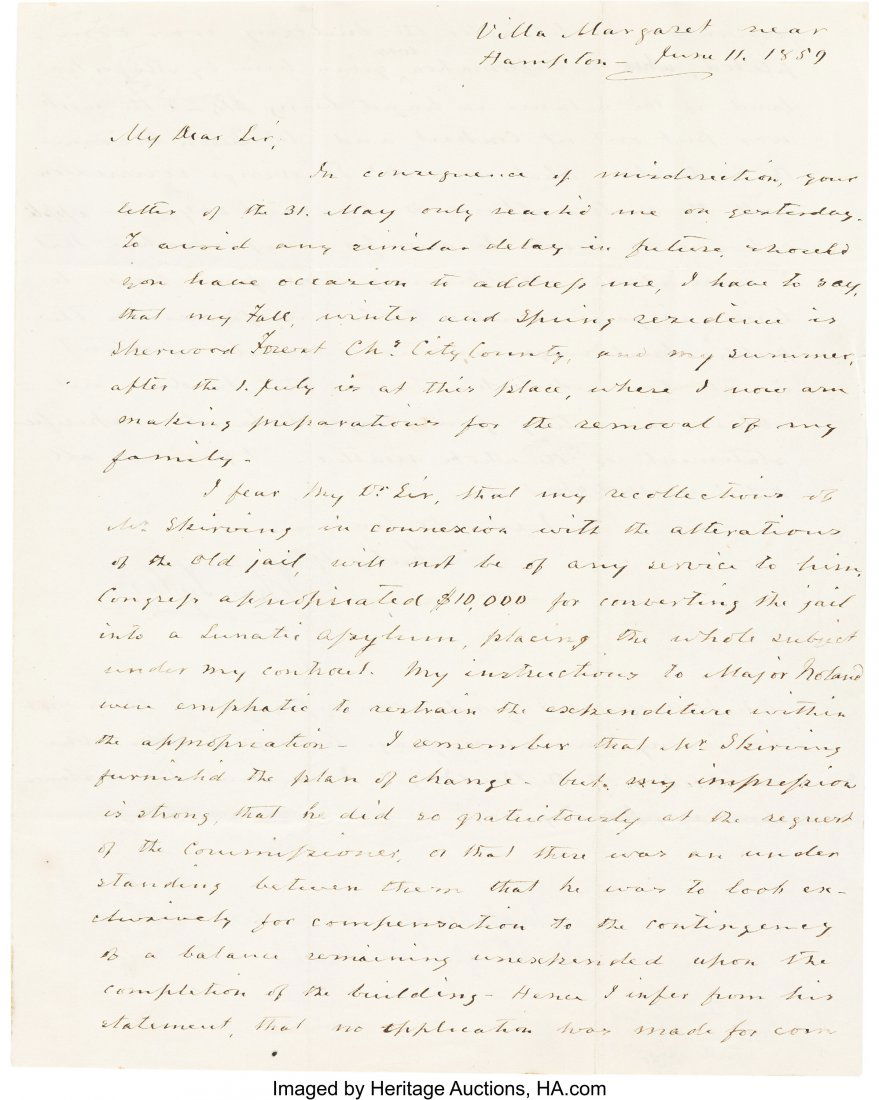 Villa Margaret near
Hampton – June 11. 1859
My Dear Sir,
In consequence of misdirection, your
letter of the 31. May only reach'd me on yesterday.
To avoid any similar delay in future, should
you have occasion to address me, I have to say,
that my Fall, winter and Spring residence is
Sherwood Forest Chs City County, and my summer,
after the 1. July is at this place, where I now am
making preparations for the removal of my
family.
I fear My Dr Sir, that my recollections of
Mr Skirving in connexion with the alterations
of the Old jail, will not be of any service to him.
Congress appropriated $10,000 for converting the jail
into a Lunatic Asylum, placing the whole subject
under my control. My instructions to Major Noland
were emphatic to restrain the expenditure within
the appropriation – I remember that Mr Skirving
furnish'd the plan of change – but my impression
is strong, that he did so gratuitously at the request
of the Commissioner, or that there was an under
standing between them that he was to look ex-
clusively for compensation to the contingency
of a balance remaining unexpended upon the
completion of the building – Hence I infer from his
statement, that no application was made for com
Imaged by Heritage Auctions, HA.com